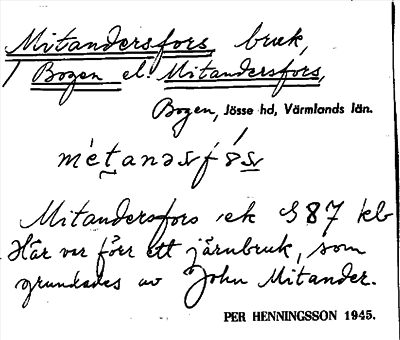 Mitandersfors bruk,
/ Bogen el. Mitandersfors,
Bogen, Jösse hd, Värmlands län.
Mitandersfors ek S 87 kb
Här var förr ett järnbruk, som
grundades av John Mitander.
PER HENNINGSSON 1945.